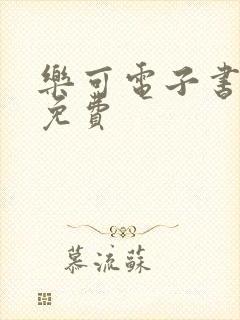 樂可電子書
免費
慕流蘇